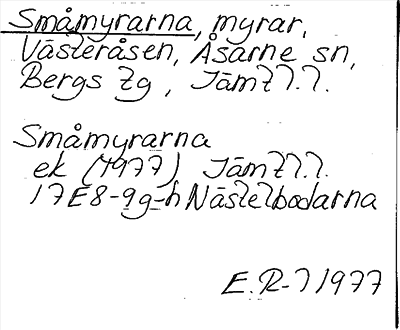 Småmyrarna, myrar,
Västeråsen, Åsarne sn,
Bergs tg, Jämtl.l.
Småmyrarna
ek (1977) Jämtl.l.
17E8-9g-h Nästelbodarna
E.R-l 1977